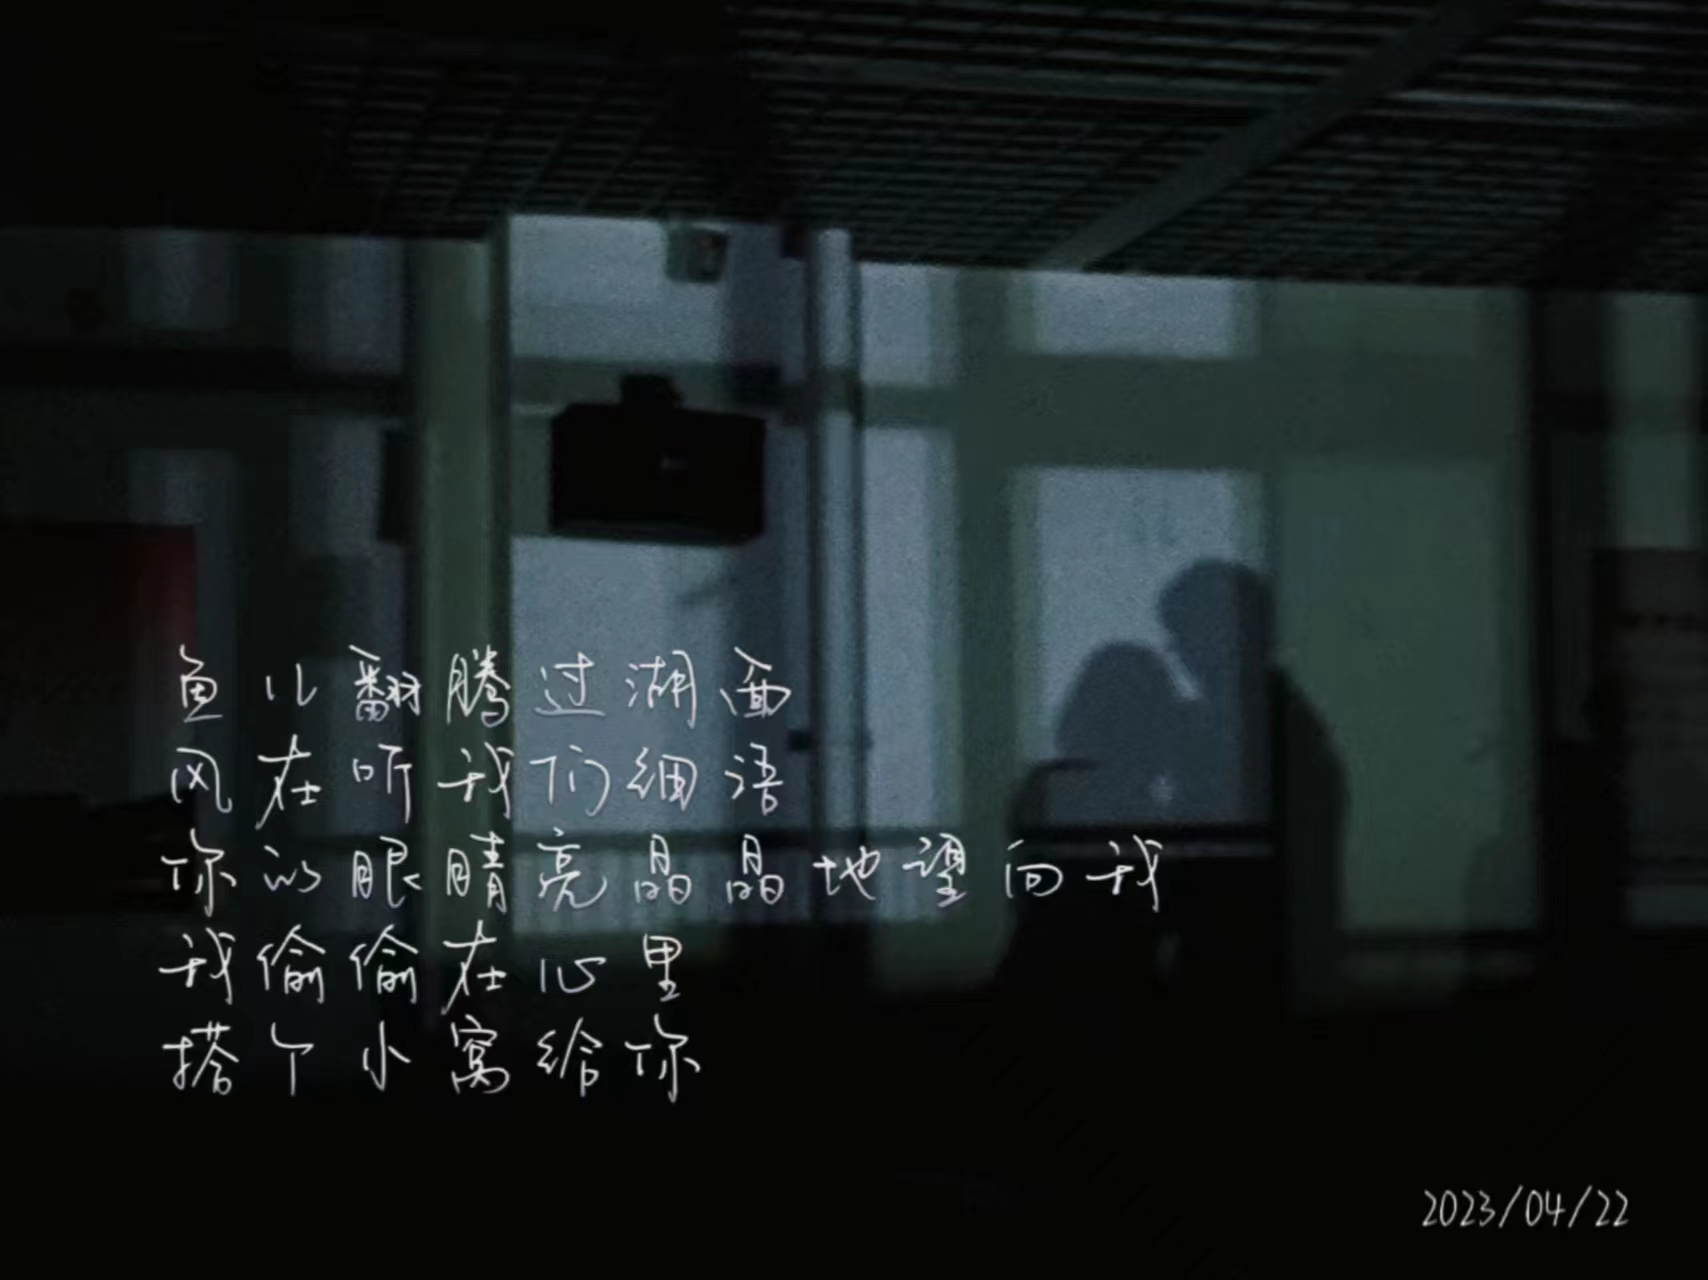 鱼儿翻腾过湖面
风在听我们细语
你的眼睛亮晶晶地望向我
我偷偷在心里
搭个小窝给你
2023/04/22